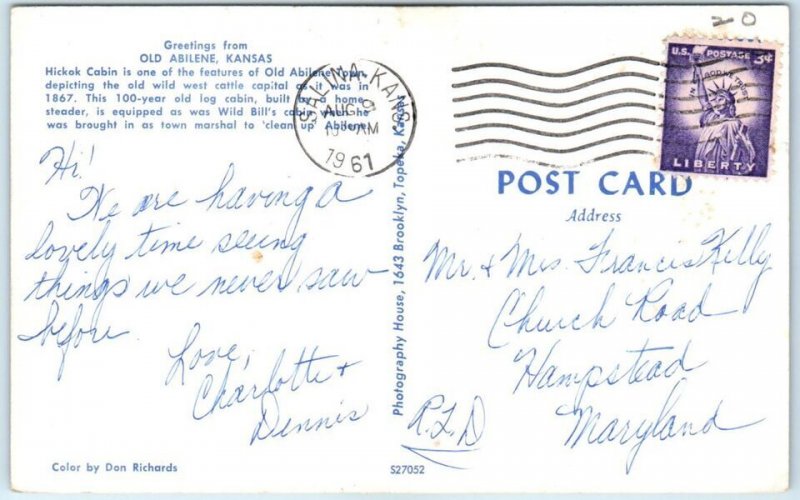 Greetings from
OLD ABILENE, KANSAS
Hickok Cabin is one of the features of Old Abilene Town
depicting the old wild west cattle capital as it was in
1867. This 100-year old log cabin, built by a home-
steader, is equipped as was Wild Bill's cabin when he
was brought in as town marshal to 'clean up' Abilene
SALINA, KANS
AUG 9
AM
1961
U.S. POSTAGE 3¢
IN GOD WE TRUST
LIBERTY
Hi!
We are having a
lovely time seeing
things we never saw
before.
Love,
Charlotte +
Dennis
Color by Don Richards
Photography House, 1643 Brooklyn, Topeka, Kansas
S27052
POST CARD
Address
Mr. & Mrs. Francis Kelly
Church Road
Hampstead
Maryland
R.F.D